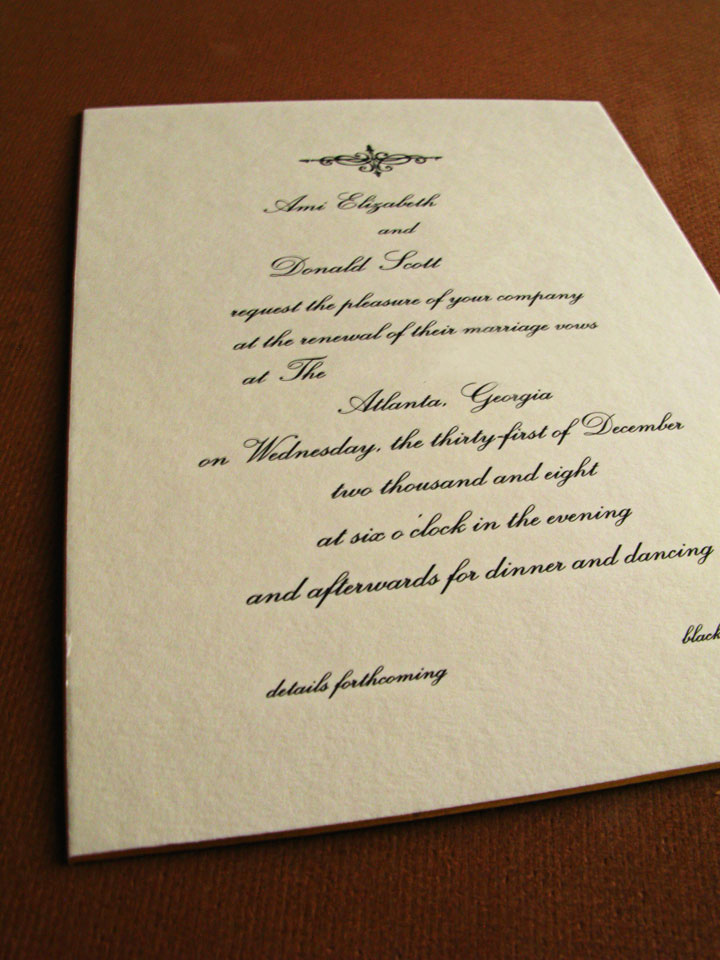 Ami Elizabeth
and
Donald Scott
request the pleasure of your company
at the renewal of their marriage vows
at The
Atlanta, Georgia
on Wednesday, the thirty-first of December
two thousand and eight
at six o'clock in the evening
and afterwards for dinner and dancing
black
details forthcoming